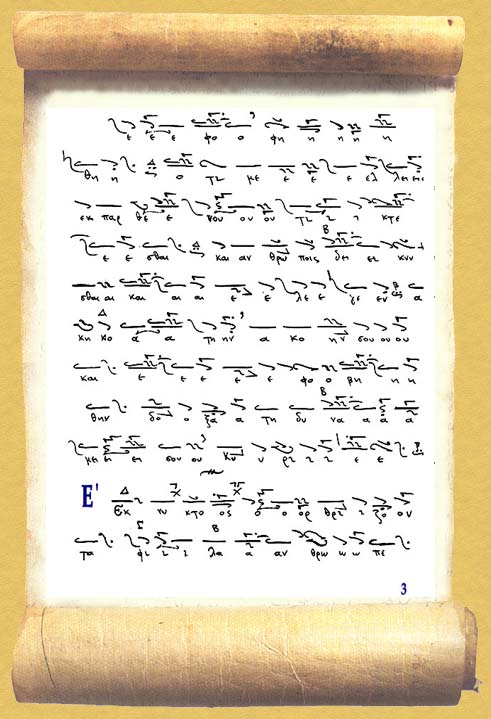 ε ε ε φο ο φη η η η η
θη η ο τι με ε ε ε ελ λεις
εκ παρ θε ε νου ου ου τι ι ι κτε
ε ε σθαι και αν θρω ποις δει ει κνυ
σθαι αι και αι αι ε ε λε ε γε εν α
κη κο α α τη ην α κο ην σου ου ου
και ε ε ε ε ε φο ο βη η η
θην δο ο ξα α τη δυ να α α α
μει ει ει σου ου Κυ υ ρι ι ι ε ε
Ε' Εκ νυ κτο ος ο ο ορ θρι ι ζο ον
τα φι ι ι λα α αν θρω ω ω πε
3